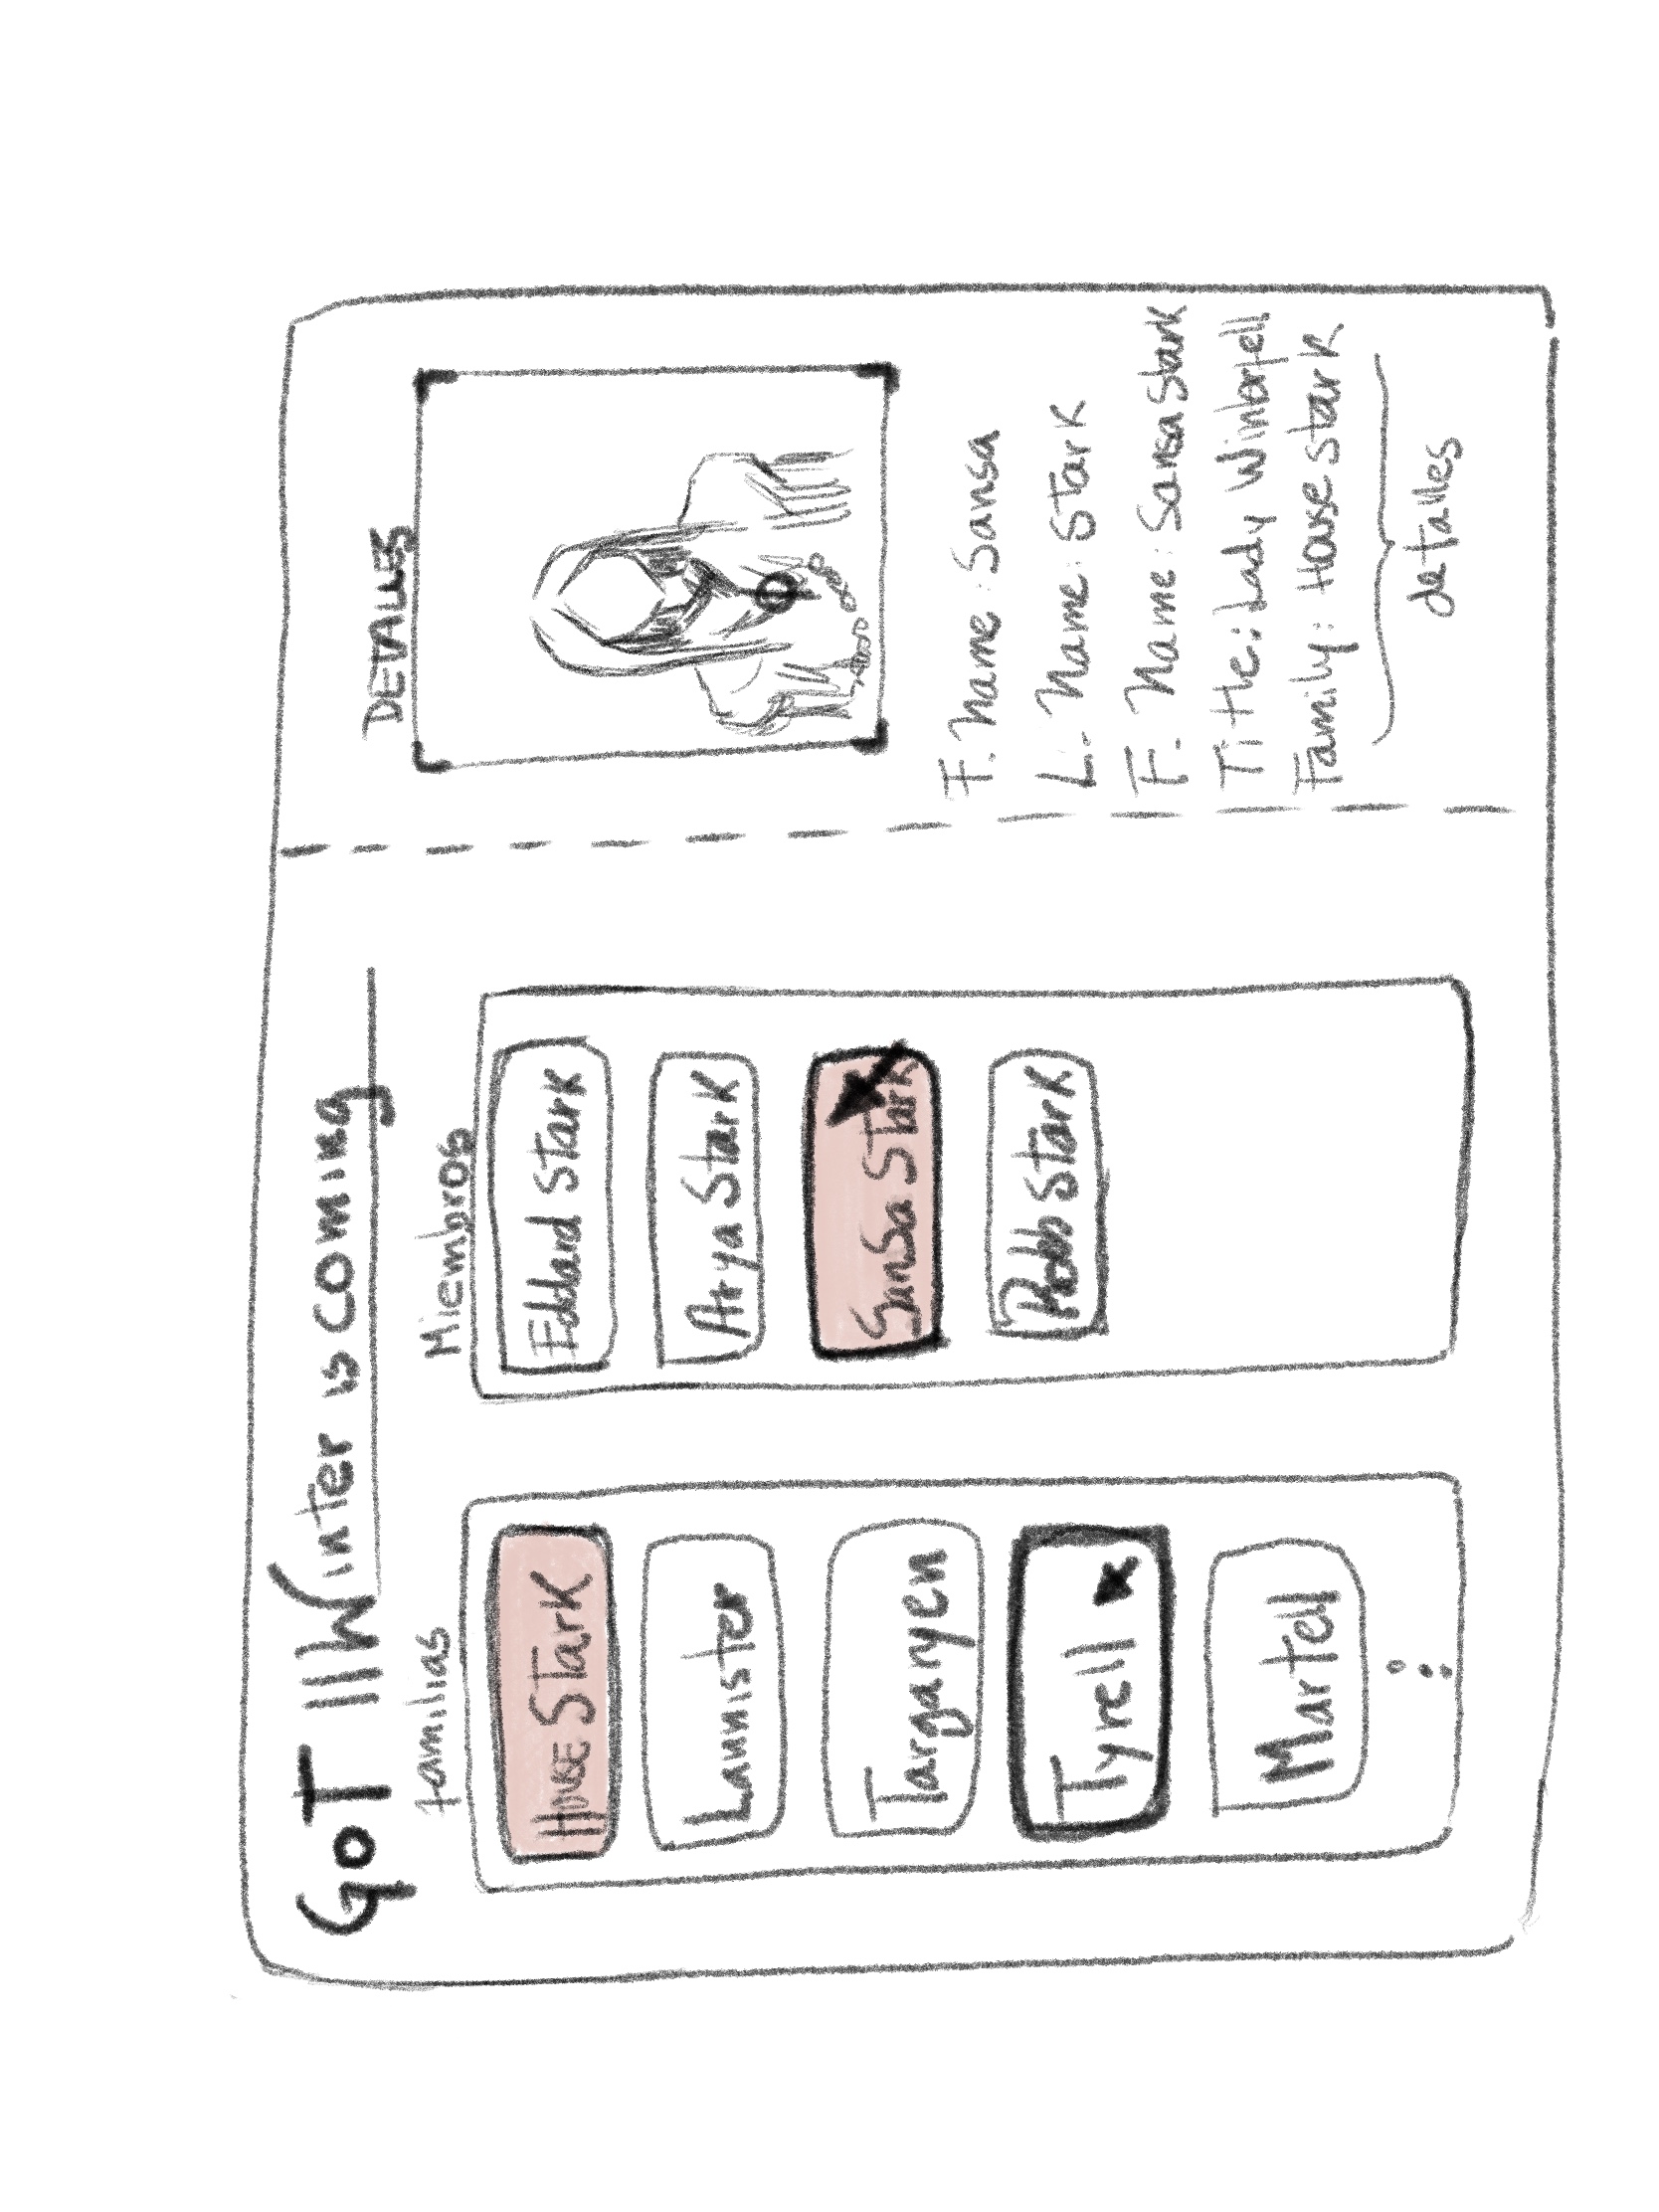 GoT || Winter is coming
familias
House Stark
Lannister
Targaryen
Tyrell
Martell
Miembros
Eddard Stark
Arya Stark
Sansa Stark
Robb Stark
DETALLES
F. Name: Sansa
L. Name: Stark
F. Name: Sansa Stark
Title: Lady Winterfell
Family: House Stark
detalles